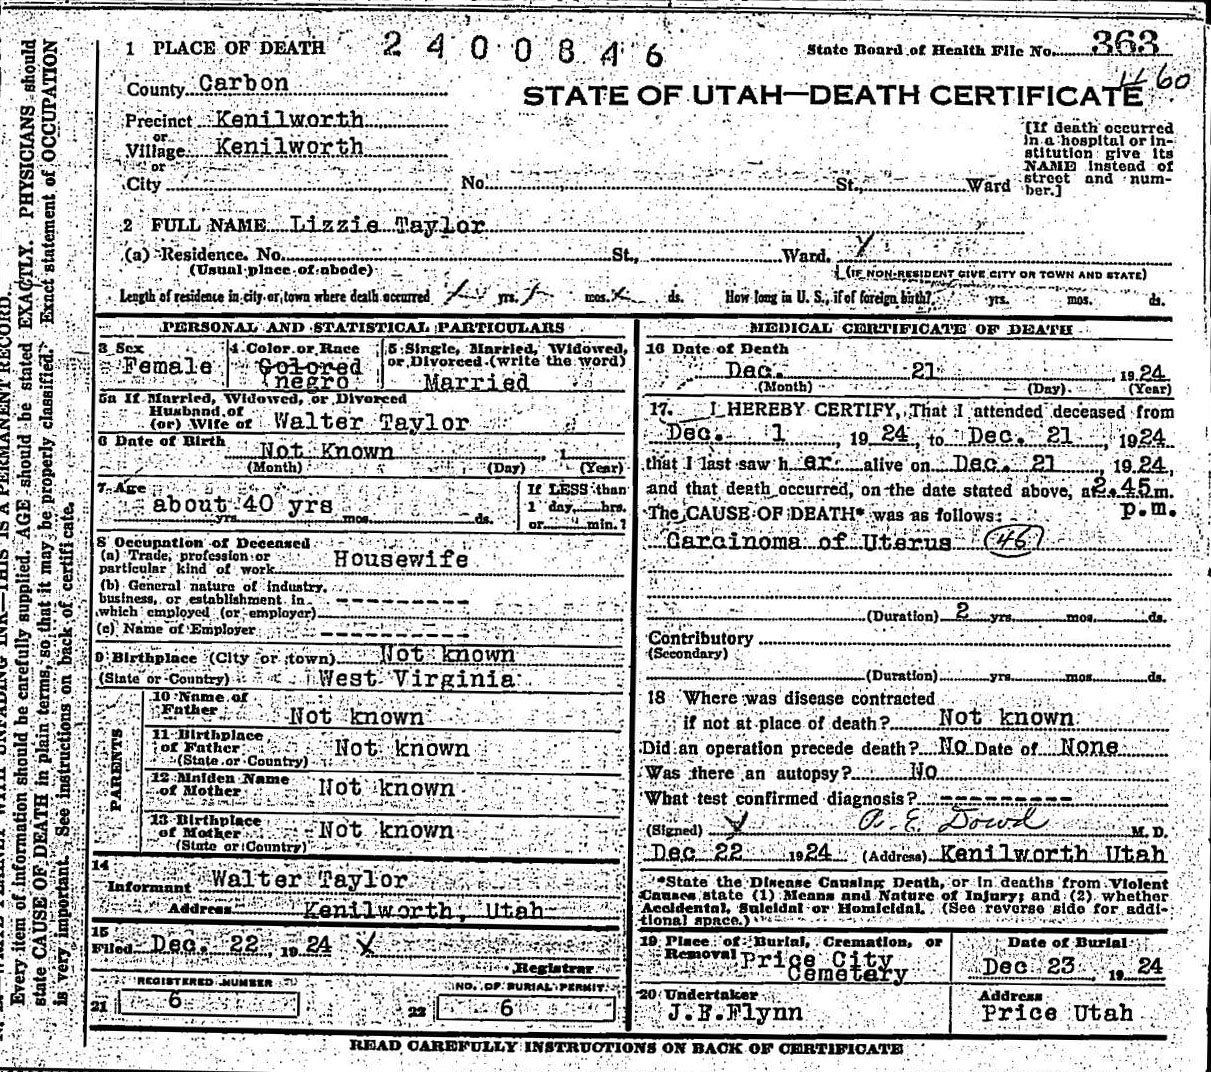 1 PLACE OF DEATH 2400846 State Board of Health File No. 363
H 60
County Carbon
STATE OF UTAH—DEATH CERTIFICATE
Precinct Kenilworth
or
Village Kenilworth
or
City No. St., Ward
[If death occurred
in a hospital or in-
stitution give its
NAME instead of
street and num-
ber.]
2 FULL NAME Lizzie Taylor
(a) Residence. No. St., Ward.
(Usual place of abode) (IF NON-RESIDENT GIVE CITY OR TOWN AND STATE)
Length of residence in city or town where death occurred yrs. mos. ds. How long in U. S., if of foreign birth? yrs. mos. ds.
PERSONAL AND STATISTICAL PARTICULARS
3 Sex
Female
4 Color or Race
Colored
negro
5 Single, Married, Widowed,
or Divorced (write the word)
Married
5a If Married, Widowed, or Divorced
Husband of
(or) Wife of Walter Taylor
6 Date of Birth
Not Known , 1
(Month) (Day) (Year)
7 Age
about 40 yrs
yrs. mos. ds.
If LESS than
1 day, hrs.
or min.?
8 Occupation of Deceased
(a) Trade, profession or
particular kind of work Housewife
(b) General nature of industry,
business, or establishment in
which employed (or employer)
(c) Name of Employer
9 Birthplace (City or town) Not known
(State or Country) West Virginia
PARENTS
10 Name of
Father Not known
11 Birthplace
of Father Not known
(State or Country)
12 Maiden Name
of Mother Not known
13 Birthplace
of Mother Not known
(State or Country)
14
Informant Walter Taylor
Address Kenilworth, Utah
15
Filed Dec. 22, 1924
Registrar
REGISTERED NUMBER
21 6
NO. OF BURIAL PERMIT
22 6
MEDICAL CERTIFICATE OF DEATH
16 Date of Death
Dec. 21 1924
(Month) (Day) (Year)
17. I HEREBY CERTIFY, That I attended deceased from
Dec. 1, 1924, to Dec. 21, 1924
that I last saw her alive on Dec. 21, 1924,
and that death occurred, on the date stated above, at 2.45 m.
p.m.
The CAUSE OF DEATH* was as follows:
Carcinoma of Uterus 46
(Duration) 2 yrs. mos. ds.
Contributory
(Secondary)
(Duration) yrs. mos. ds.
18 Where was disease contracted
if not at place of death? Not known
Did an operation precede death? No Date of None
Was there an autopsy? No
What test confirmed diagnosis?
(Signed) Dowd M. D.
Dec 22 1924 (Address) Kenilworth Utah
*State the Disease Causing Death, or in deaths from Violent
Causes state (1) Means and Nature of Injury; and (2) whether
Accidental, Suicidal or Homicidal. (See reverse side for addi-
tional space.)
19 Place of Burial, Cremation, or
Removal Price City
Cemetary
Date of Burial
Dec 23, 1924
20 Undertaker
J.E.Flynn
Address
Price Utah
READ CAREFULLY INSTRUCTIONS ON BACK OF CERTIFICATE
WITH UNFADING INK—THIS IS A PERMANENT RECORD.
Every item of information should be carefully supplied. AGE should be stated EXACTLY. PHYSICIANS should
state CAUSE OF DEATH in plain terms, so that it may be properly classified. Exact statement of OCCUPATION
is very important. See instructions on back of certificate.